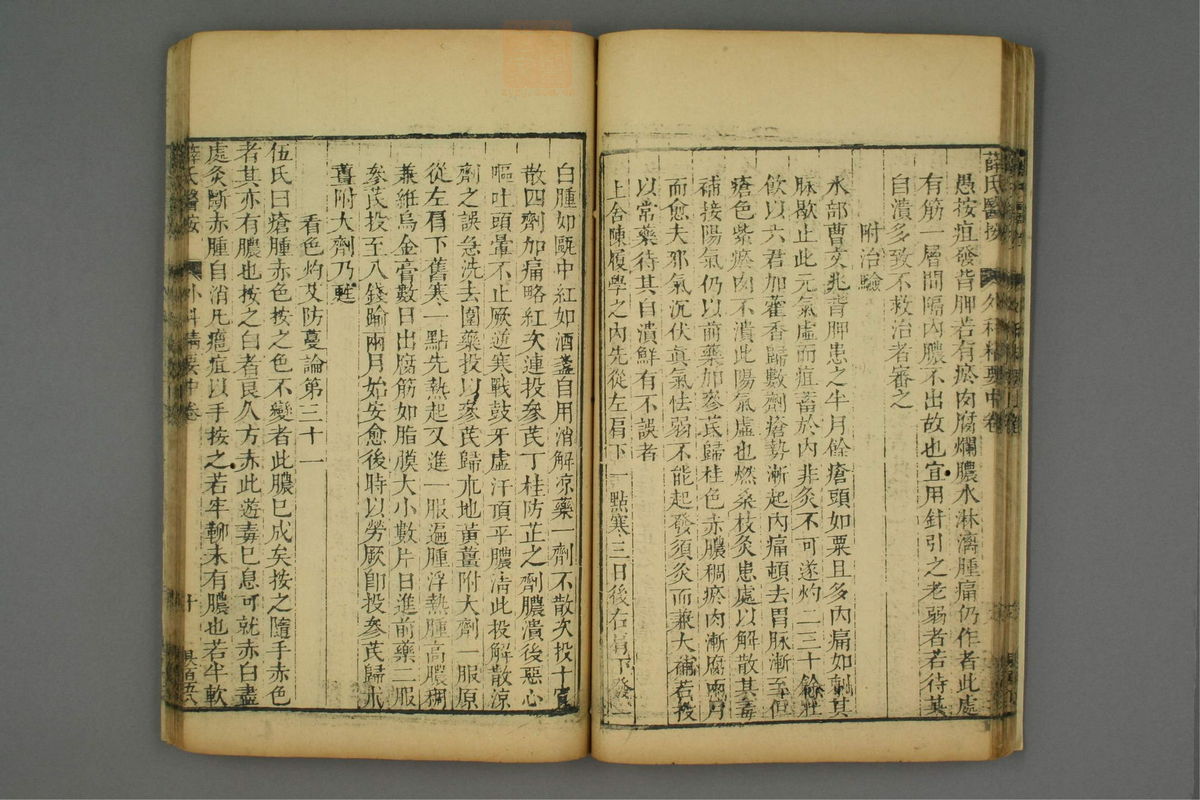 愚按疽發背胛若有瘀肉腐爛膿水淋漓腫痛仍作者此處
有筋一層間隔內膿不出故也宜用針引之老弱者若待其
自潰多致不救治者審之
附治驗
水部曹文兆背胛患之半月餘瘡頭如粟且多內痛如刺其
脉歇止此元氣虛而疽蓄於內非灸不可遂灼二三十餘壯
飲以六君加藿香歸數劑瘡勢漸起內痛頓去胃脉漸至但
瘡色紫瘀肉不潰此陽氣虛也燃桑枝灸患處以解散其毒
補接陽氣仍以前藥加參芪歸桂色赤膿稠瘀肉漸腐兩月
而愈夫邪氣沉伏眞氣怯弱不能起發須灸而兼大補若投
以常藥待其自潰鮮有不誤者
上舍陳履學之內先從左肩下一點寒三日後右肩下發一
白腫如甌中紅如酒盞自用消解凉藥一劑不散次投十宣
散四劑加痛略紅次連投參芪丁桂防芷之劑膿潰後惡心
嘔吐頭暈不止厥逆寒戰鼓牙虛汗頂平膿淸此投解散涼
劑之誤急洗去圍藥投以參芪歸朮地黃薑附大劑一服原
從左肩下舊寒一點先熱起又進一服遍腫浮熱腫高膿稠
兼維烏金膏數日出腐筋如脂膜大小數片日進前藥二服
參芪投至八錢踰兩月始安愈後時以勞厥卽投參芪歸朮
薑附大劑乃甦
看色灼艾防蔓論第三十一
伍氏曰瘡腫赤色按之色不變者此膿已成矣按之隨手赤色
者其亦有膿也按之白者良久方赤此遊毒已息可就赤白盡
處灸斷赤腫自消凡癰疽以手按之若牢靭未有膿也若半軟
薛氏醫按
外科精要中卷
十